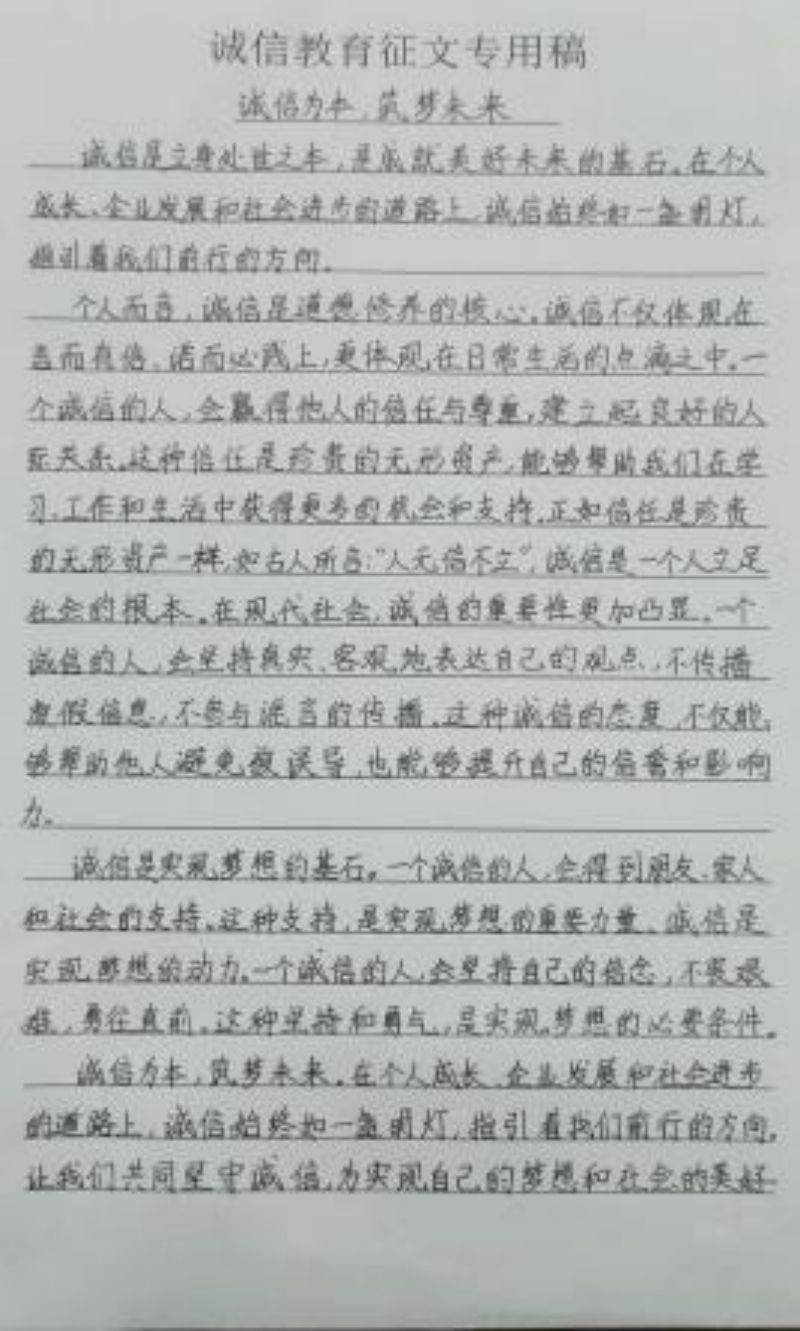 诚信教育征文专用稿
诚信为本,筑梦未来
诚信是立身处世之本,是成就美好未来的基石。在个人
成长、企业发展和社会进步的道路上,诚信始终如一盏明灯,
指引着我们前行的方向。
个人而言,诚信是道德修养的核心。诚信不仅体现在
言而有信、诺而必践上,更体现在日常生活的点滴之中。一
个诚信的人,会赢得他人的信任与尊重,建立起良好的人
际关系。这种信任是珍贵的无形资产,能够帮助我们在学
习、工作和生活中获得更多的机会和支持。正如信任是珍贵
的无形资产一样,如古人所言:“人无信不立”,诚信是一个人立足
社会的根本。在现代社会,诚信的重要性更加凸显。一个
诚信的人,会坚持真实、客观地表达自己的观点,不传播
虚假信息,不参与谣言的传播。这种诚信的态度,不仅能
够帮助他人避免被误导,也能够提升自己的信誉和影响
力。
诚信是实现梦想的基石。一个诚信的人,会得到朋友、家人
和社会的支持。这种支持,是实现梦想的重要力量、诚信是
实现梦想的动力。一个诚信的人,会坚持自己的信念,不畏艰
难,勇往直前。这种坚持和勇气,是实现梦想的必要条件。
诚信为本,筑梦未来。在个人成长、企业发展和社会进步
的道路上,诚信始终如一盏明灯,指引着我们前行的方向。
让我们共同坚守诚信,为实现自己的梦想和社会的美好